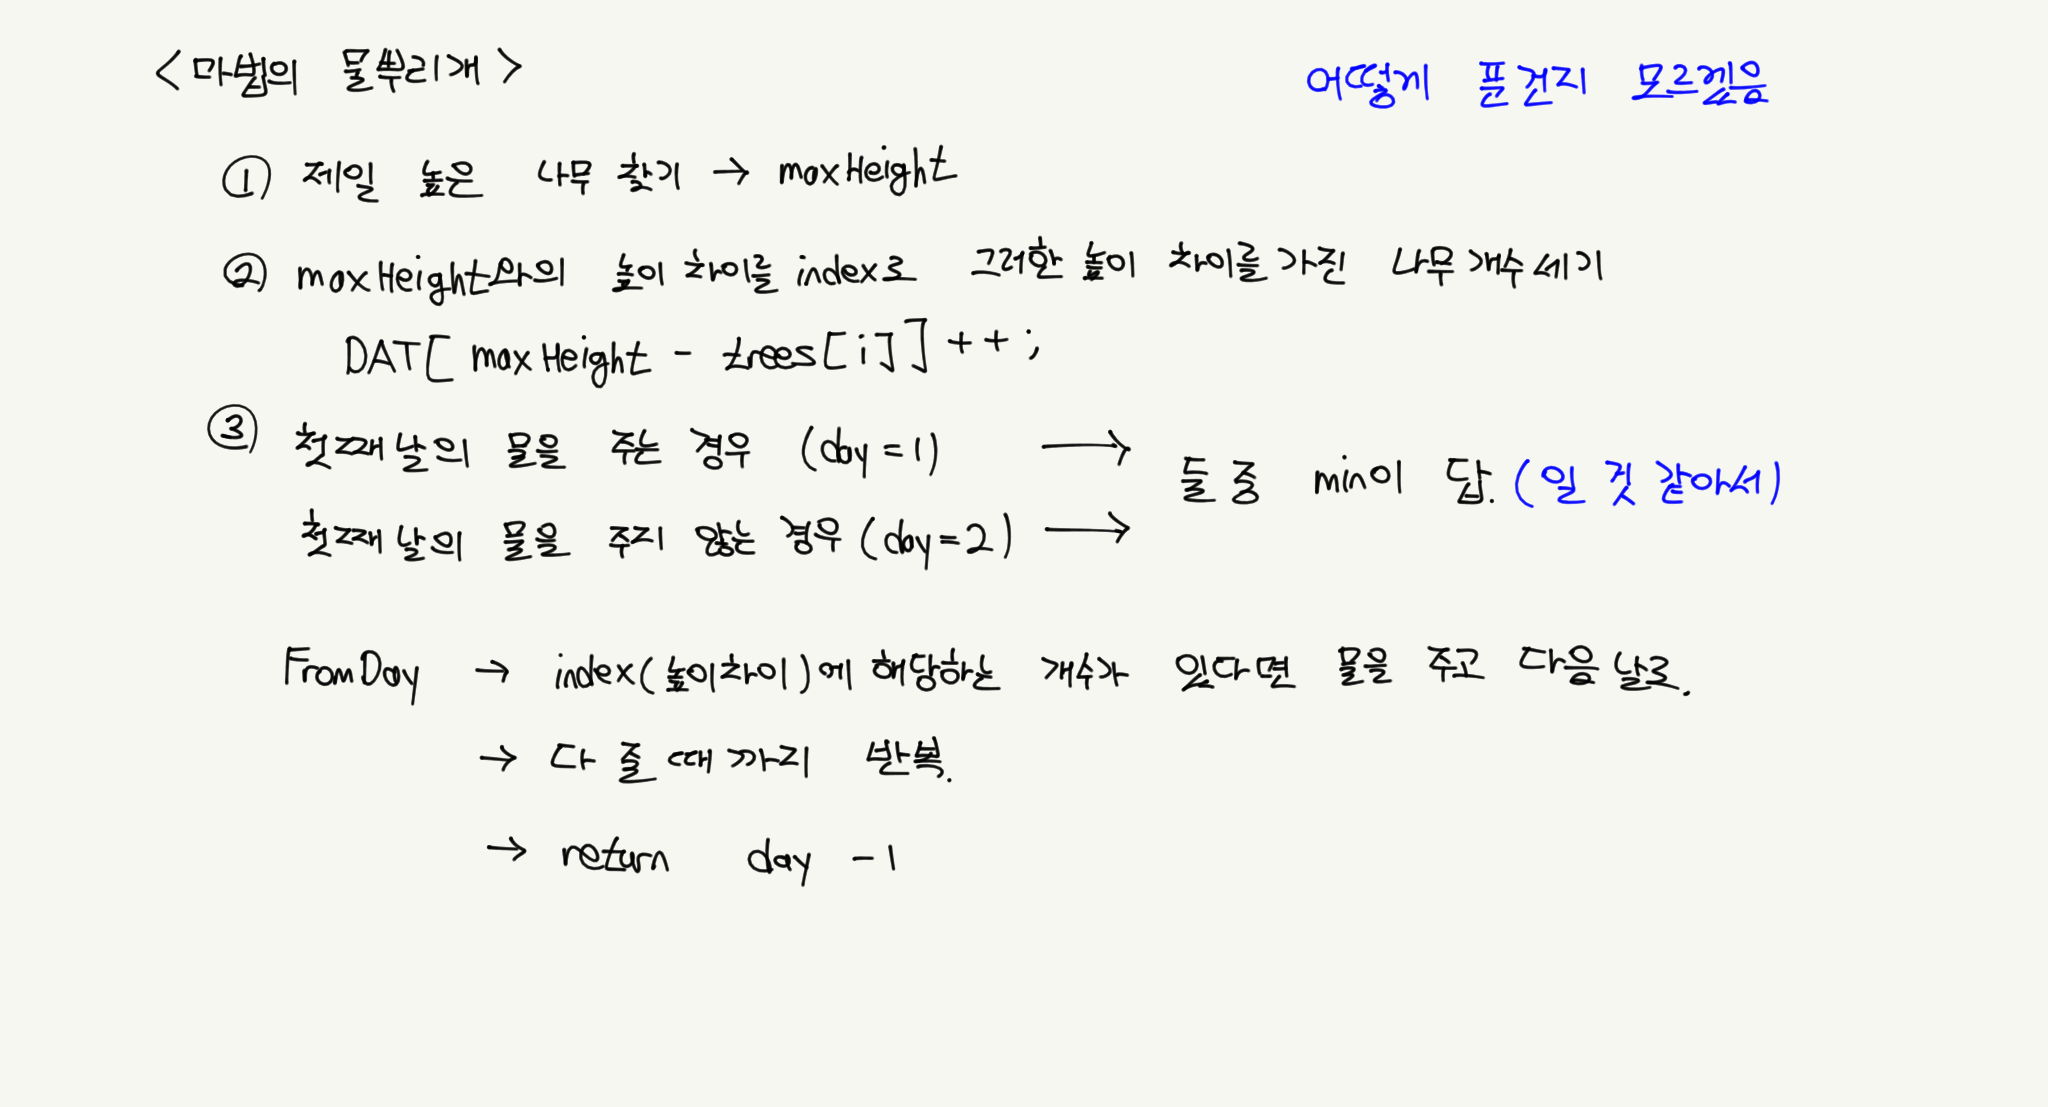 <마법의 물뿌리개>
어떻게 푼건지 모르겠음
① 제일 높은 나무 찾기 → maxHeight
② maxHeight와의 높이 차이를 index로 그러한 높이 차이를 가진 나무 개수 세기
DAT[ maxHeight - trees[i]]++;
③ 첫째날의 물을 주는 경우 (day=1) →
첫째날의 물을 주지 않는 경우 (day=2) →
둘 중 min이 답. (일 것 같아서)
FromDay → index(높이차이)에 해당하는 개수가 있다면 물을 주고 다음 날로.
→ 다 줄때까지 반복.
→ return day -1